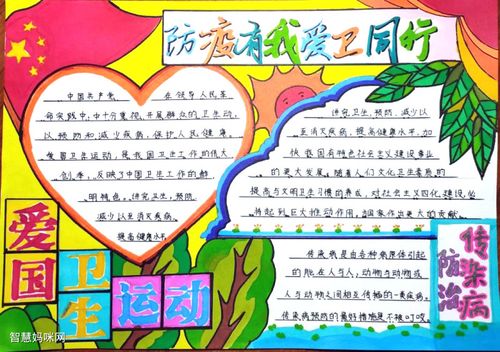 防疫有我爱卫同行
中国共产党 在领导人民革
命实践中，十分重视开展群众的卫生动，
以预防和减少疾病，保护人民健康。
爱国卫生运动，是我国卫生工作的伟大
创举，反映了中国卫生工作的鲜
明特色。讲究卫生，预防
减少以至消灭疾病，
提高健康水平
讲究卫生，预防，减少以
至消灭疾病，提高健康水平，加
快我国有特色社会主义建设事业
的更大发展。随着人们文化卫生素质的
提高与文明卫生习惯的养成，对社会主义四化建设，必
将起到巨大推动作用，国家作出更大的贡献。
爱国
卫生
运动
传染病
防治
传染病是由各种病原体引起
的能在人与人，动物与动物或
人与动物之间相互传播的一类疾病。
传染病预防的最好措施是不被叮咬。
智慧妈咪网